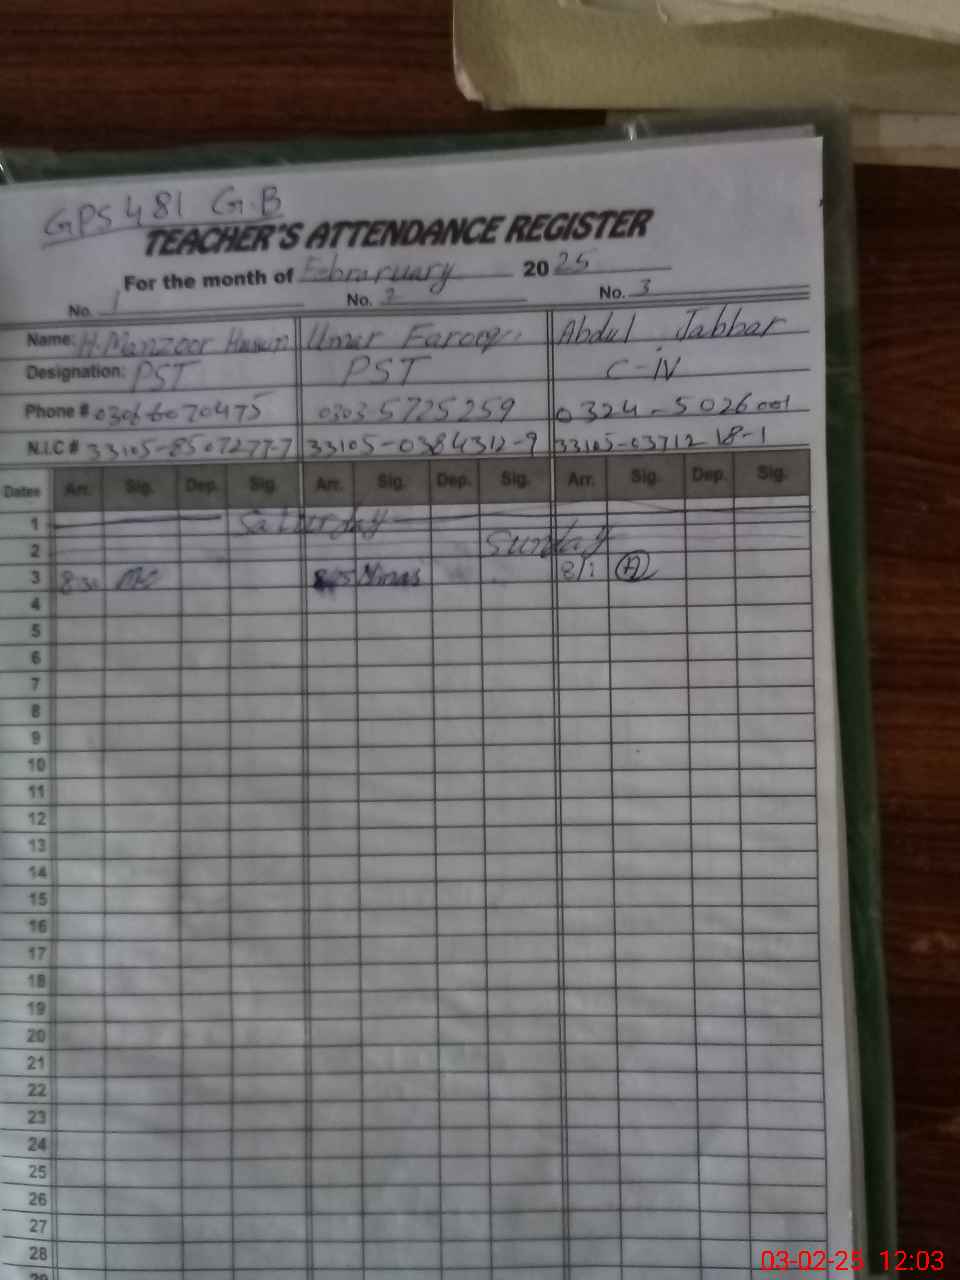 GPS 481 G.B
TEACHER'S ATTENDANCE REGISTER
For the month of Febraruary 2025
No. 1 No. 2 No. 3
Name: H. Manzoor Umar Farooq Abdul Jabbar
Designation: PST PST C-IV
Phone # 03066070475 0303-5725259 0324-5026001
N.I.C # 33105-8507277-7 33105-0384312-9 33105-0371218-1
Dates Arr. Sig. Dep. Sig. Arr. Sig. Dep. Sig. Arr. Sig. Dep. Sig.
1 Saturday
2 Sunday
3 8:30
4
5
6
7
8
9
10
11
12
13
14
15
16
17
18
19
20
21
22
23
24
25
26
27
28
29
03-02-25 12:03